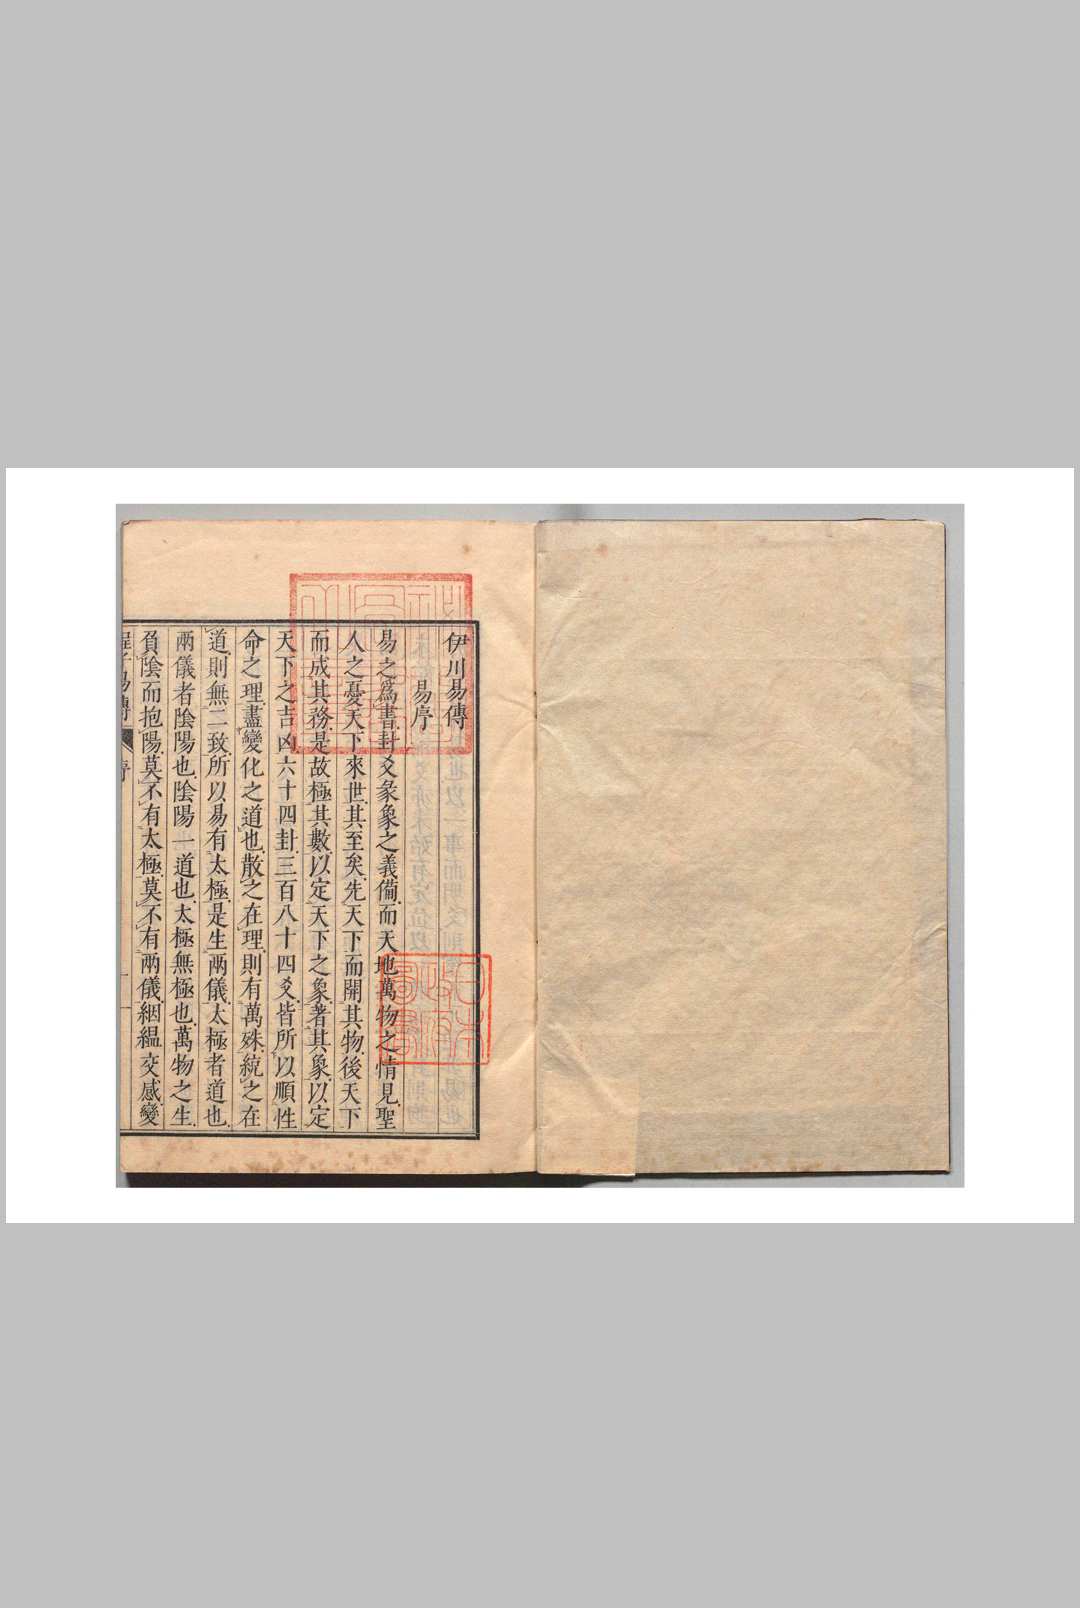 伊川易傳
易序
易之爲書卦爻彖象之義備而天地萬物之情見聖
人之憂天下來世其至矣先天下而開其物後天下
而成其務是故極其數以定天下之象著其象以定
天下之吉凶六十四卦三百八十四爻皆所以順性
命之理盡變化之道也散之在理則有萬殊統之在
道則無二致所以易有太極是生兩儀太極者道也
兩儀者陰陽也陰陽一道也太極無極也萬物之生
負陰而抱陽莫不有太極莫不有兩儀絪縕交感變